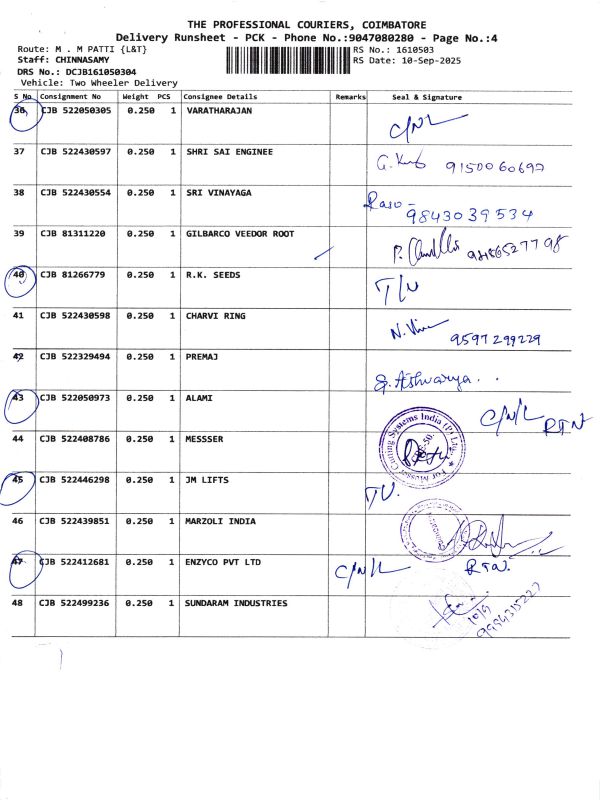 THE PROFESSIONAL COURIERS, COIMBATORE
Delivery Runsheet - PCK - Phone No.:9047080280 - Page No.:4
Route: M . M PATTI {L&T} RS No.: 1610503
Staff: CHINNASAMY RS Date: 10-Sep-2025
DRS No.: DCJB161050304
Vehicle: Two Wheeler Delivery
S No. Consignment No Weight PCS Consignee Details Remarks Seal & Signature
36 CJB 522050305 0.250 1 VARATHARAJAN C/N/L
37 CJB 522430597 0.250 1 SHRI SAI ENGINEE
38 CJB 522430554 0.250 1 SRI VINAYAGA 9843039534
39 CJB 81311220 0.250 1 GILBARCO VEEDOR ROOT
40 CJB 81266779 0.250 1 R.K. SEEDS T/N
41 CJB 522430598 0.250 1 CHARVI RING 9597299229
42 CJB 522329494 0.250 1 PREMAJ S. Aishwarya . .
43 CJB 522050973 0.250 1 ALAMI C/N/L RTN
44 CJB 522408786 0.250 1 MESSSER For Messer Cutting Systems India (P) Ltd.,
45 CJB 522446298 0.250 1 JM LIFTS
46 CJB 522439851 0.250 1 MARZOLI INDIA
47 CJB 522412681 0.250 1 ENZYCO PVT LTD C/N/L RTN.
48 CJB 522499236 0.250 1 SUNDARAM INDUSTRIES 10/9